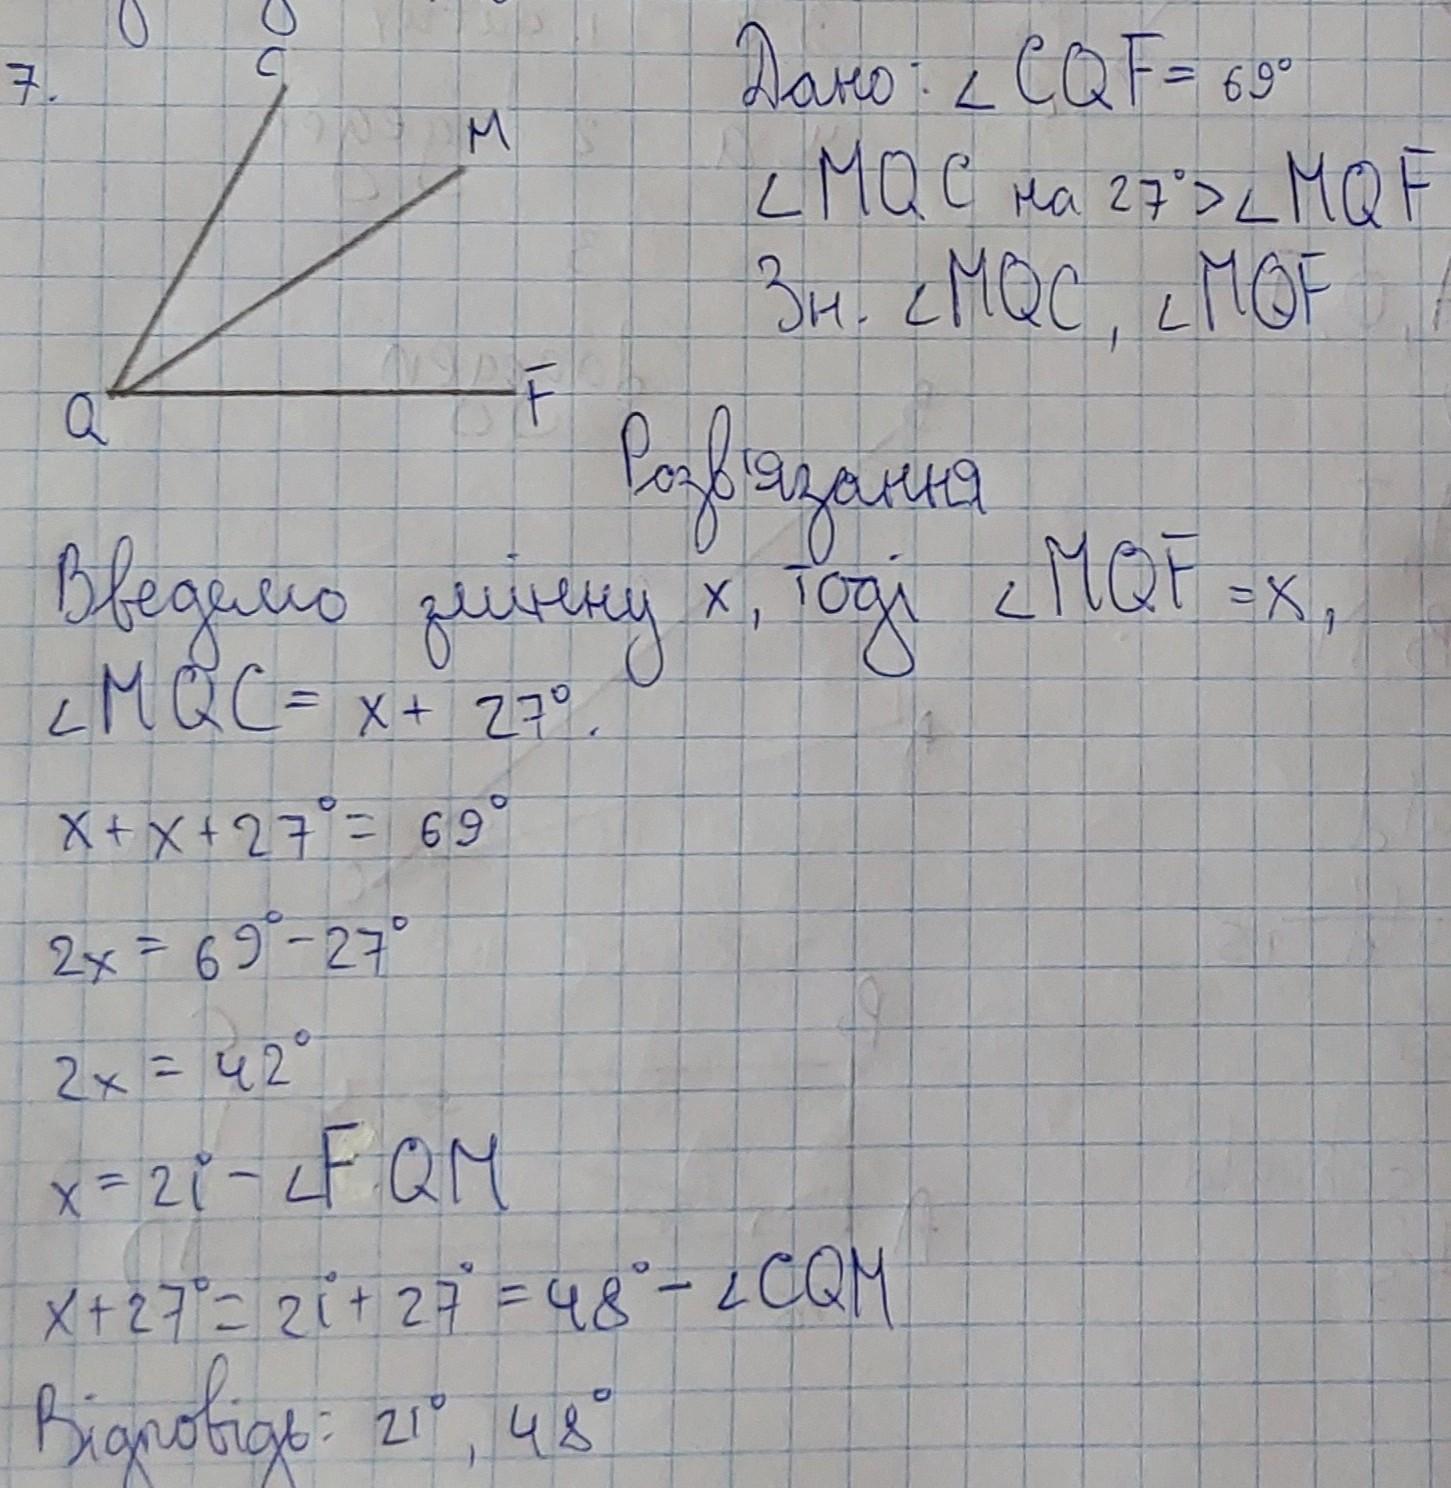 7.
C
M
Q
F
Дано: ∠CQF = 69°
∠MQC на 27° > ∠MQF
Зн. ∠MQC, ∠MQF
Розв'язання
Введемо змінну x, тоді ∠MQF = x,
∠MQC = x + 27°.
x + x + 27° = 69°
2x = 69° - 27°
2x = 42°
x = 21° - ∠FQM
x + 27° = 21° + 27° = 48° - ∠CQM
Відповідь: 21°, 48°